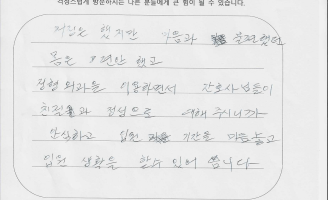 걱정스럽게 방문하시는 다른 분들에게 큰 힘이 될 수 있습니다.
걱정은 했지만 마음과
몸은 편안 했고
정형외과를 이용하면서 간호사님들이
친절과 정성으로 대해 주시니까
안심하고 입원 기간을 마음놓고
입원 생활을 할수 있어 습니다